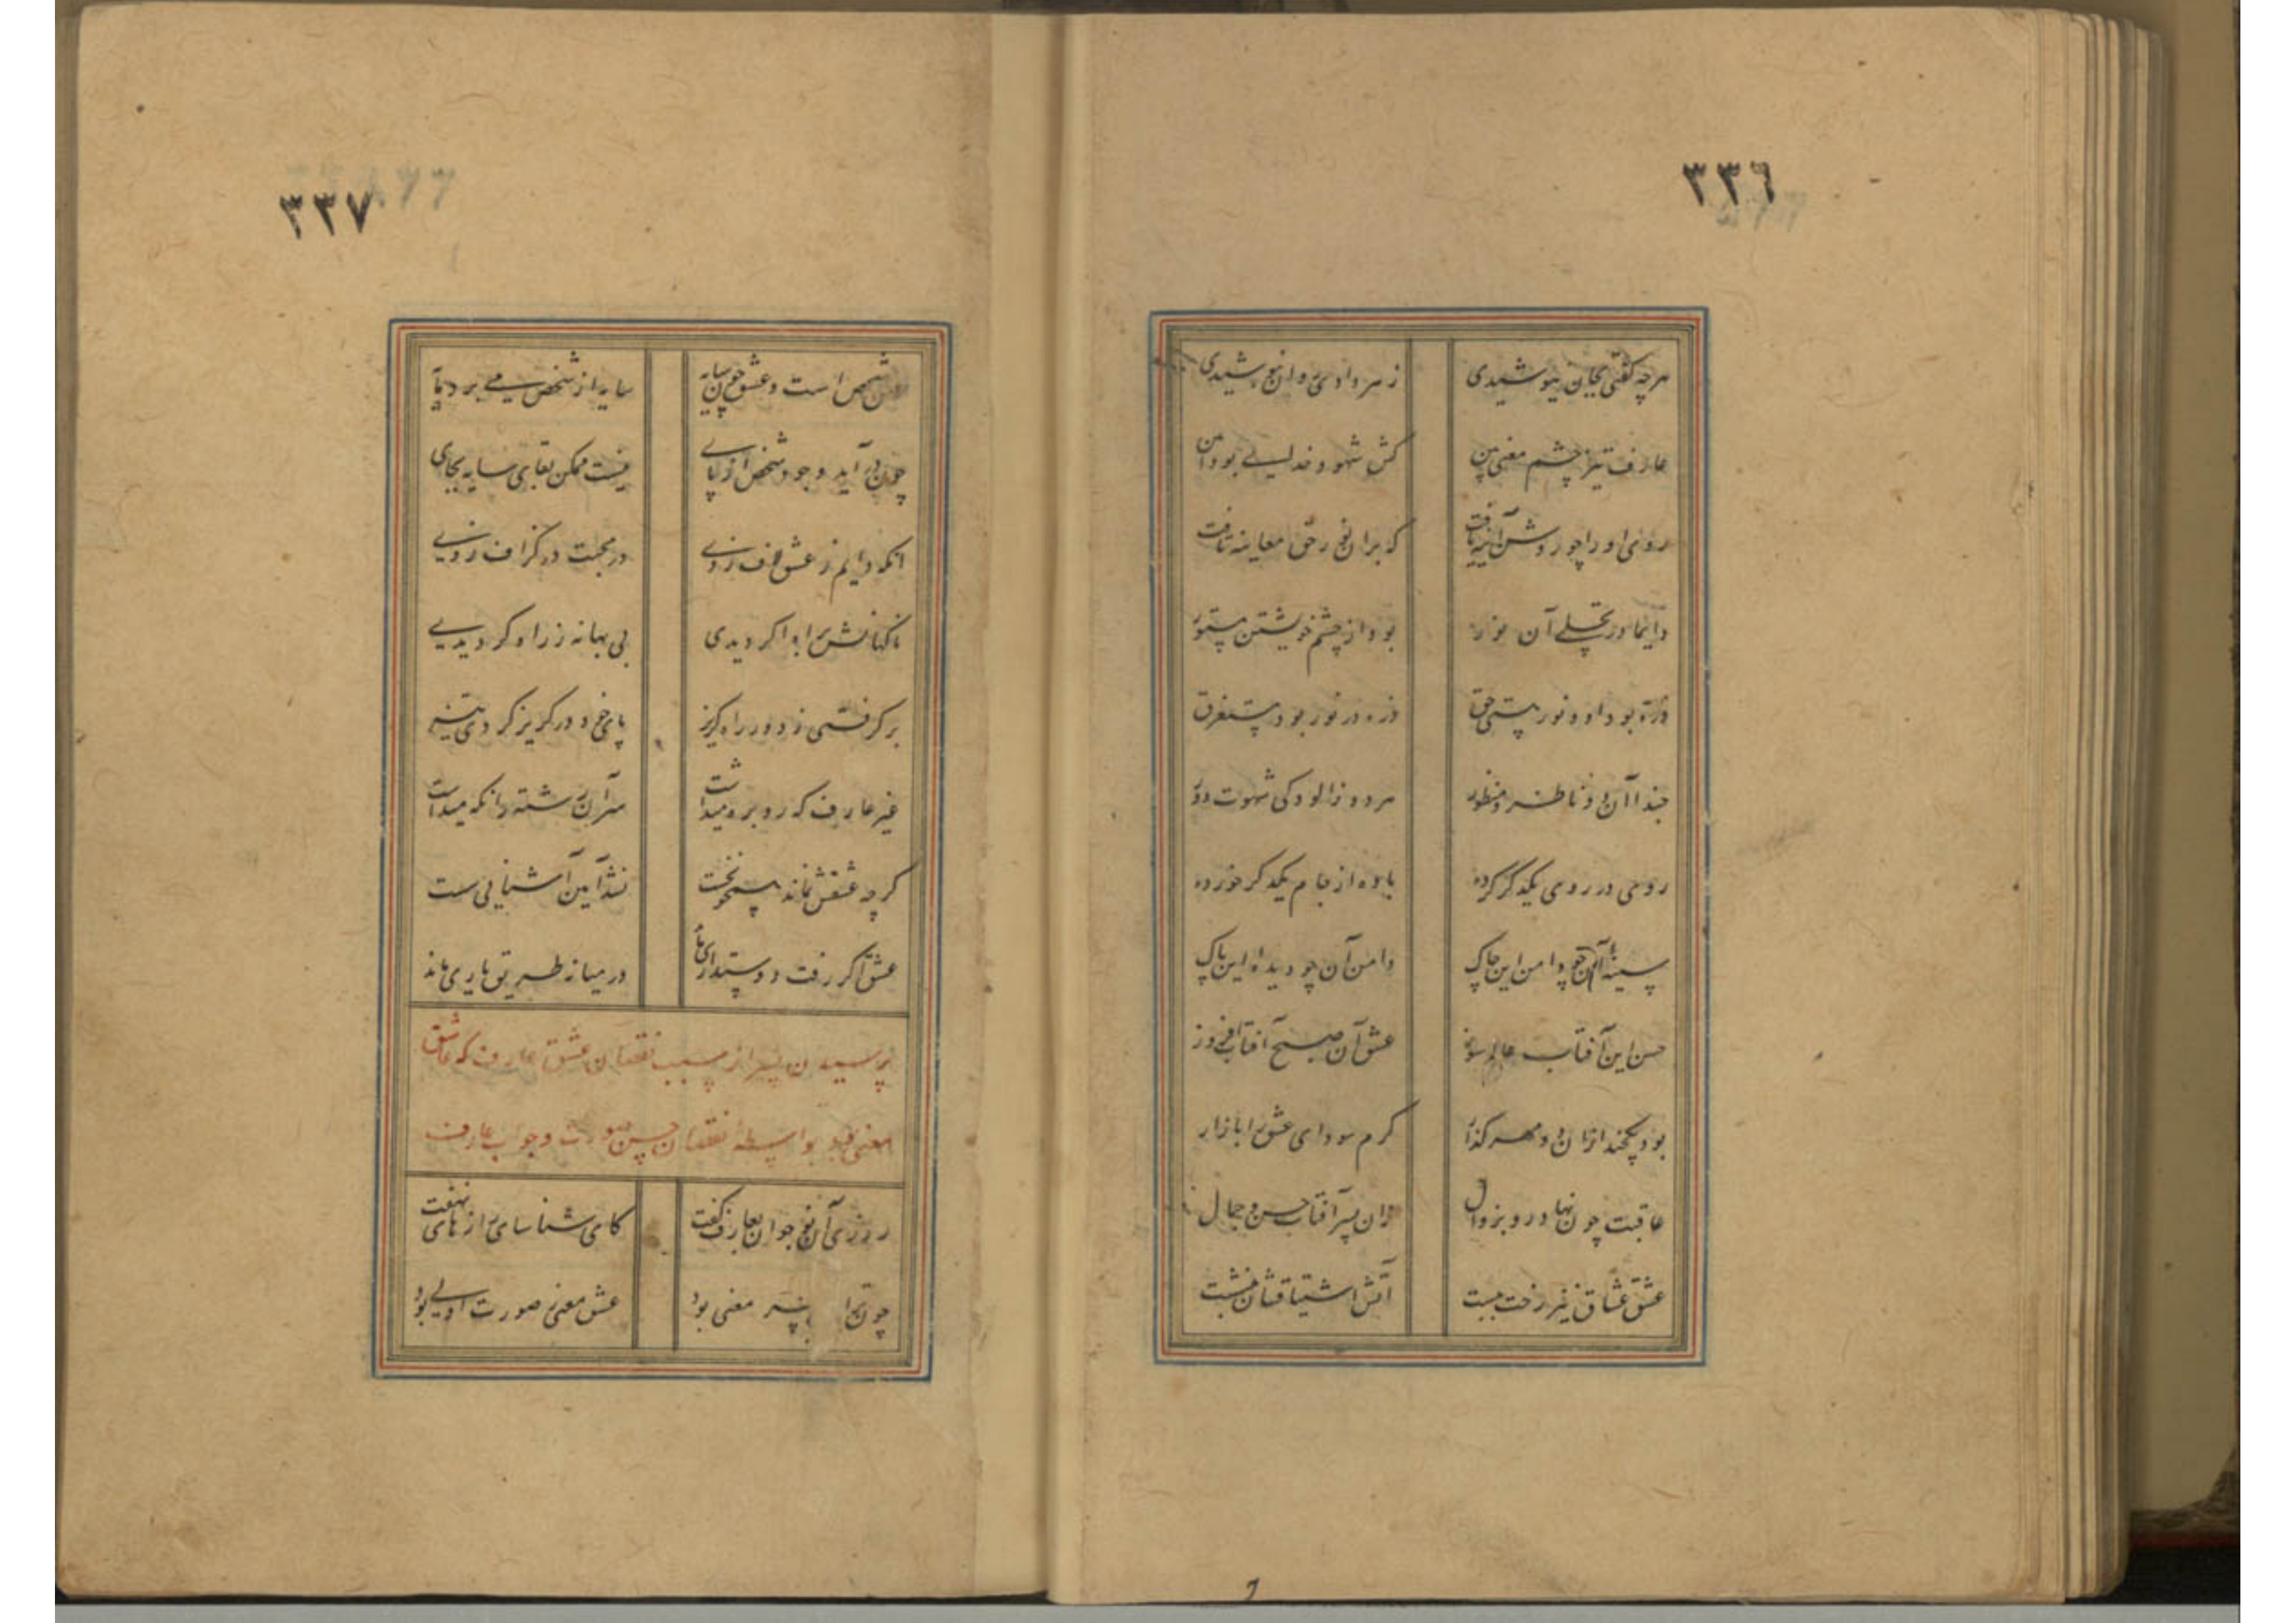 ٣٣٦
هرچه گفتی بجان نیوشیدی زهر دادی روان بنوشیدی
عارف تیز چشم معنی بین کش شهود خدای بود
روی او را چو روشن آینه یافت که بران نور حق معاینه تافت
دایما در تجلی آن نور بود از چشم خویشتن مستور
ذره بود او و نور هستی حق ذره در نور بود مستغرق
حبذا آن دو ناظر و منظور هر دو ز آلودگی شهوت دور
روی در روی یکدگر کرده باده از جام یکدگر خورده
سینه آن چو دامن این چاک دامن آن چو دیده این پاک
حسن این آفتاب عالم سوز عشق آن صبح آفتاب افروز
بود یکچند ازان دو مهر گذار گرم سودای عشق را بازار
عاقبت چون نهاد رو بزوال زان پسر آفتاب حسن و جمال
عشق عشاق نیز رخت ببست آتش اشتیاقشان بنشست
٣٣٧
حسن شخص است و عشق چون سایه سایه از شخص می برد مایه
چون در آید وجود شخص از پای نیست ممکن بقای سایه بجای
انکه دایم ز عشق لاف زدی در محبت در گزاف زدی
ناگهانش برابر ار دیدی بی بهانه ز راه گردیدی
برگرفتی ز دور راه گریز پای خود در گریز کردی تیز
غیر عارف که رو بره میداشت سر آن رشته را نگه میداشت
گرچه عشقش نماند همچو نخست نشد آیین آشنایی سست
عشق اگر رفت دوستداری ماند در میانه طریق یاری ماند
پرسیدن پسر از سبب نقصان عشق عارف که عاشق
معنی بود بواسطه نقصان حسن صورت و جواب عارف
روزی آن نوجوان بعارف گفت کای شناسای رازهای نهفت
چون ترا پسر معنی بود عشق معنی صورت اولی بود